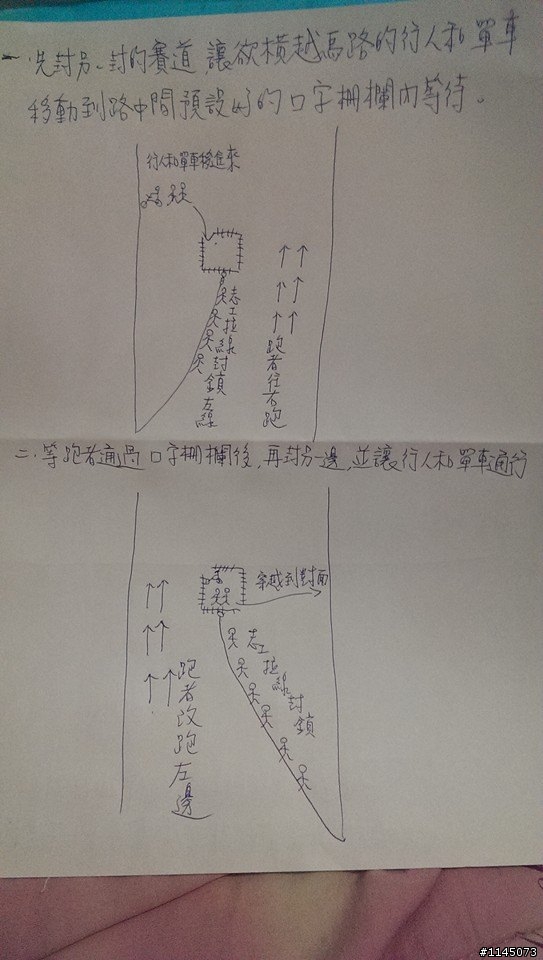 一.先封另一封的賽道,讓欲橫越馬路的行人和單車
移動到路中間預設好的口字柵欄內等待。
行人和單車後進來
志工拉線封鎖左線
跑者往右跑
二.等跑者通過口字柵欄後,再封另一邊,並讓行人和單車通行
穿越到對面
志工拉線封鎖
跑者改跑左邊
#1145073